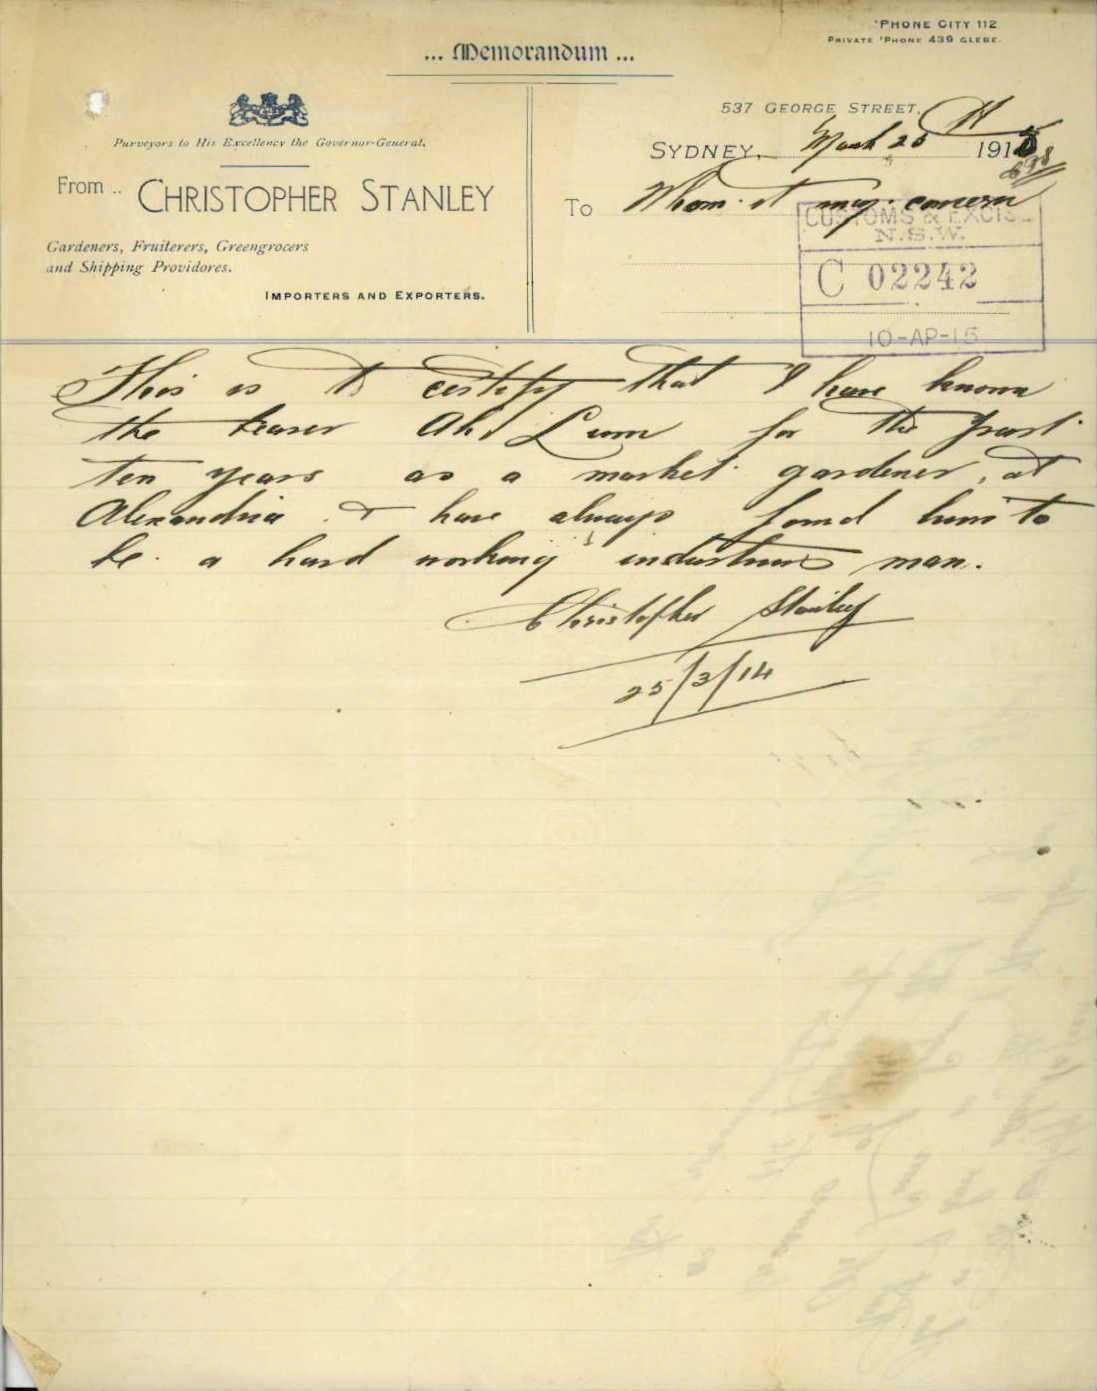 'PHONE CITY 112
PRIVATE 'PHONE 439 GLEBE.
... Memorandum ...
537 GEORGE STREET,
Purveyors to His Excellency the Governor-General.
SYDNEY, March 25 1915
From .. CHRISTOPHER STANLEY
To Whom it may concern
CUSTOMS & EXCISE
N.S.W.
Gardeners, Fruiterers, Greengrocers
and Shipping Providores.
C 02242
IMPORTERS AND EXPORTERS.
10-AP-15
This is to certify that I have known
the bearer Ah. Lum for the past
ten years as a market gardener, at
Alexandria & have always found him to
be a hard working industrious man.
Christopher Stanley
25/3/14